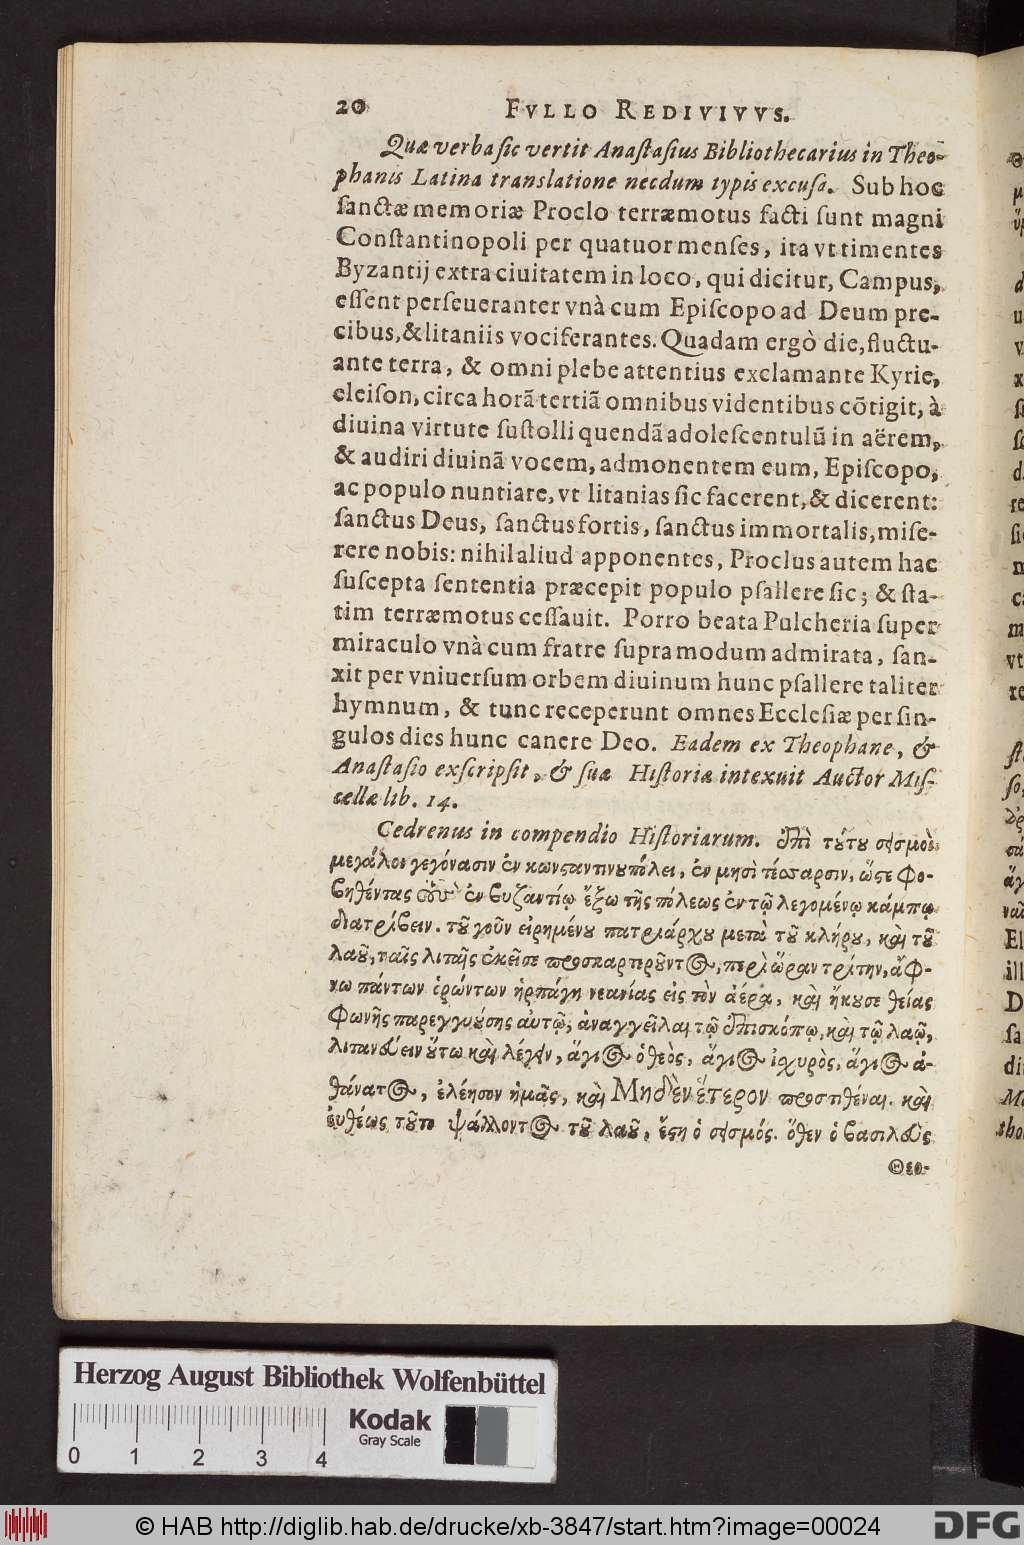 20 FVLLO REDIVIVVS.
Quæ verba sic vertit Anastasius Bibliothecarius in Theo-
phanis Latina translatione necdum typis excusa. Sub hoc
ſanctæ memoriæ Proclo terræmotus facti ſunt magni
Conſtantinopoli per quatuor menſes, ita vt timentes
Byzantij extra ciuitatem in loco, qui dicitur, Campus,
eſſent perſeueranter vnà cum Epiſcopo ad Deum pre-
cibus, & litaniis vociferantes. Quadam ergò die, fluctu-
ante terra, & omni plebe attentius exclamante Kyrie,
eleiſon, circa horã tertiã omnibus videntibus cõtigit, à
diuina virtute ſuſtolli quendã adoleſcentulũ in aërem,
& audiri diuinã vocem, admonentem eum, Epiſcopo,
ac populo nuntiare, vt litanias ſic facerent, & dicerent:
ſanctus Deus, ſanctus fortis, ſanctus immortalis, miſe-
rere nobis: nihil aliud apponentes, Proclus autem hac
ſuſcepta ſententia præcepit populo pſallere ſic; & ſta-
tim terræmotus ceſſauit. Porro beata Pulcheria ſuper
miraculo vnà cum fratre ſupra modum admirata, ſan-
xit per vniuerſum orbem diuinum hunc pſallere taliter
hymnum, & tunc receperunt omnes Eccleſiæ per ſin-
gulos dies hunc canere Deo. Eadem ex Theophane, &
Anaſtaſio exſcripſit, & ſuæ Hiſtoriæ intexuit Auctor Miſ-
cellæ lib. 14.
Cedrenus in compendio Hiſtoriarum. ἐπὶ τύτυ σεισμοὶ
μεγάλοι γεγόνασιν ἐν κωνσταντινυπόλει, ἐν μησὶ τέσσαρσιν, ὥστε φο-
βηθέντας ἐν βυζαντίῳ ἔξω τῆς πόλεως ἐν τῷ λεγομένῳ κάμπῳ
διατρίβειν. τοῦ γοῦν εἰρημένου πατριάρχου μετὰ τοῦ κλήρου, καὶ τοῦ
λαοῦ, ταῖς λιταῖς ἐκεῖσε προσκαρτεροῦντος, περὶ ὥραν τρίτην, ἄφ-
νω πάντων ὁρώντων ἡρπάγη νεανίας εἰς τὸν ἀέρα, καὶ ἤκουσε θείας
φωνῆς παρεγγυούσης αὐτῷ, ἀναγγεῖλαι τῷ ἐπισκόπῳ, καὶ τῷ λαῷ,
λιτανεύειν οὕτω καὶ λέγειν, ἅγιος ὁ θεὸς, ἅγιος ἰχυρὸς, ἅγιος ἀ-
θάνατος, ἐλέησον ἡμᾶς, καὶ Μηδὲν ἕτερον προστιθέναι. καὶ
εὐθέως τοῦτο ψάλλοντος τοῦ λαοῦ, ἔστη ὁ σεισμός. ὅθεν ὁ βασιλεὺς
Θεο-
Herzog August Bibliothek Wolfenbüttel
0 1 2 3 4
Kodak
Gray Scale
© HAB http://diglib.hab.de/drucke/xb-3847/start.htm?image=00024
DFG